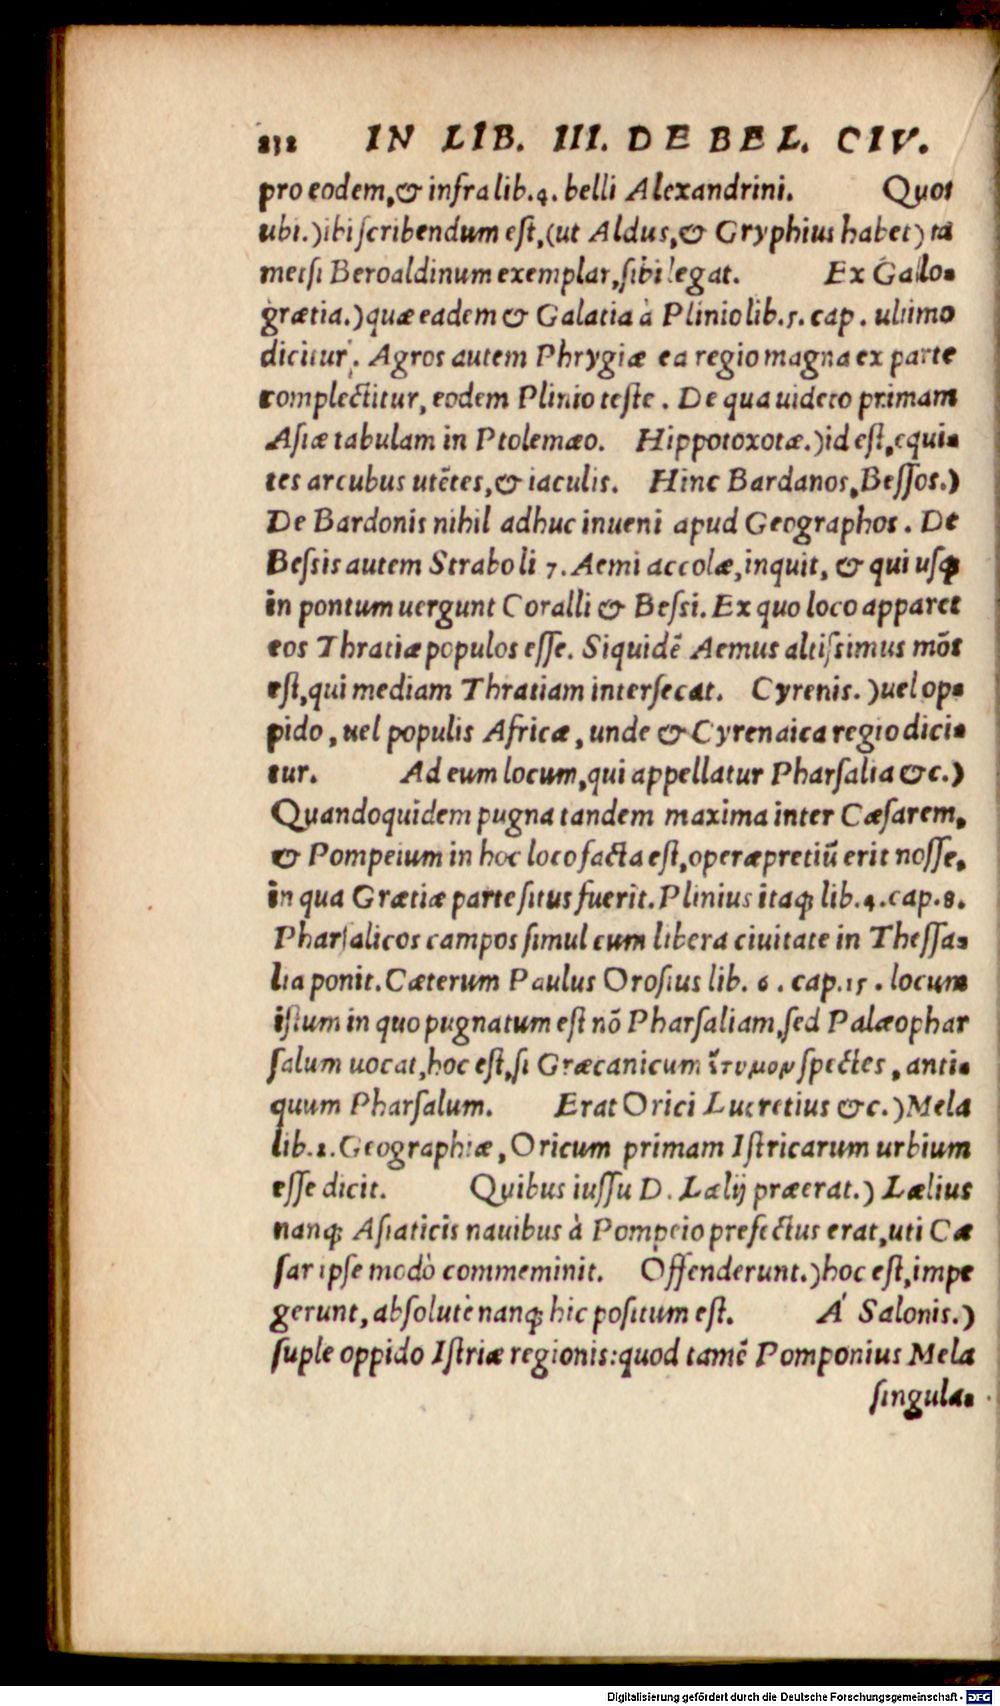 232 IN LIB. III. DE BEL. CIV.
pro eodem, & infra lib. 4. belli Alexandrini. Quot
ubi.) ibi scribendum est, (ut Aldus, & Gryphius habet) tā
metsi Beroaldinum exemplar, sibi legat. Ex Gallo-
grætia.) quæ eadem & Galatia à Plinio lib. 5. cap. ultimo
dicitur. Agros autem Phrygiæ ea regio magna ex parte
complectitur, eodem Plinio teste. De qua uideto primam
Asiæ tabulam in Ptolemæo. Hippotoxotæ.) id est, equi-
tes arcubus utētes, & iaculis. Hinc Bardanos, Bessos.)
De Bardonis nihil adhuc inueni apud Geographos. De
Bessis autem Strabo li 7. Aemi accolæ, inquit, & qui usq;
in pontum uergunt Coralli & Bessi. Ex quo loco apparet
eos Thratiæ populos esse. Siquidē Aemus altissimus mōs
est, qui mediam Thratiam intersecat. Cyrenis.) uel op-
pido, uel populis Africæ, unde & Cyrenaica regio dici-
tur. Ad eum locum, qui appellatur Pharsalia &c.)
Quandoquidem pugna tandem maxima inter Cæsarem,
& Pompeium in hoc loco facta est, operæpretiū erit nosse,
in qua Grætiæ parte situs fuerit. Plinius itaq; lib. 4. cap. 8.
Pharsalicos campos simul cum libera ciuitate in Thessa-
lia ponit. Cæterum Paulus Orosius lib. 6. cap. 15. locum
istum in quo pugnatum est nō Pharsaliam, sed Palæophar
salum uocat, hoc est, si Græcanicum ἔτυμον spectes, anti-
quum Pharsalum. Erat Orici Lucretius &c.) Mela
lib. 2. Geographiæ, Oricum primam Istricarum urbium
esse dicit. Quibus iussu D. Lælij præerat.) Lælius
nanq; Asiaticis nauibus à Pompeio prefectus erat, uti Cæ
sar ipse modò commeminit. Offenderunt.) hoc est, impe
gerunt, absolutè nanq; hic positum est. A' Salonis.)
suple oppido Istriæ regionis: quod tamē Pomponius Mela
singula-
Digitalisierung gefördert durch die Deutsche Forschungsgemeinschaft - DFG